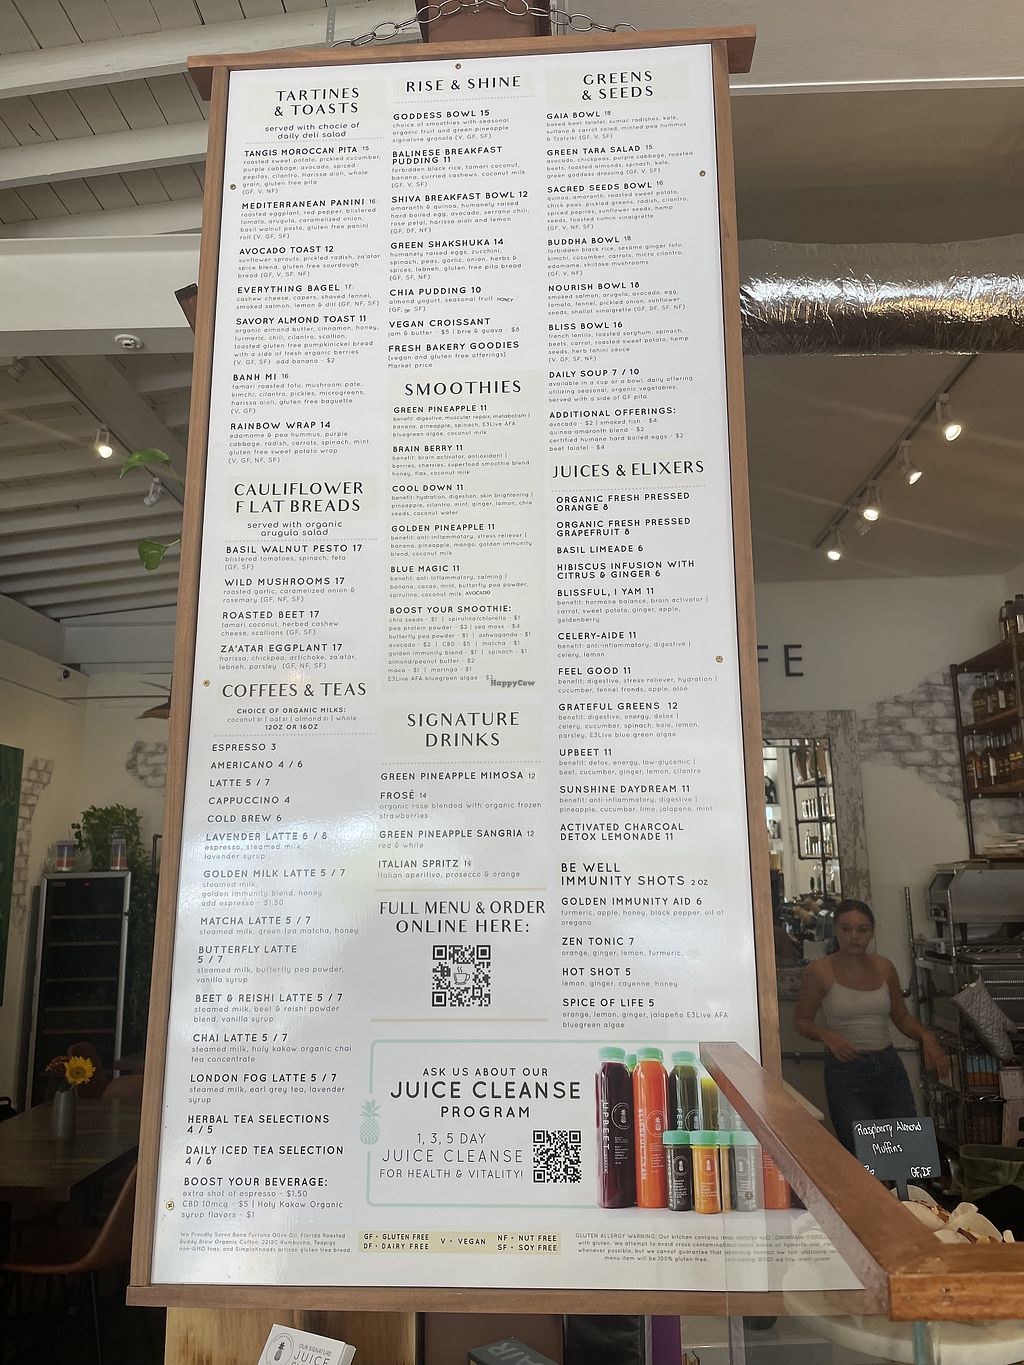 TARTINES
& TOASTS
served with chocie of
daily deli salad
TANGIS MOROCCAN PITA 15
roasted sweet potato, pickled cucumber,
purple cabbage, avocado, spiced
pepitas, cilantro, Harissa aioli, whole
grain, gluten free pita
(GF, V, NF)
MEDITERRANEAN PANINI 16
roasted eggplant, red pepper, blistered
tomato, arugula, caramelized onion,
basil walnut pesto, gluten free panini
roll (V, GF, SF)
AVOCADO TOAST 12
sunflower sprouts, pickled radish, za'atar
spice blend, gluten free sourdough
bread (GF, V, SF, NF)
EVERYTHING BAGEL 17
cashew cheese, capers, shaved fennel,
smoked salmon, lemon & dill (GF, NF, SF)
SAVORY ALMOND TOAST 11
organic almond butter, cinnamon, honey,
turmeric, chili, cilantro, scallion,
toasted gluten free pumpkinickel bread
with a side of fresh organic berries
(V, GF, SF) add banana - $2
BANH MI 16
tamari roasted tofu, mushroom pate,
kimchi, cilantro, pickles, microgreens,
harissa aioli, gluten free baguette
(V, GF)
RAINBOW WRAP 14
edamame & pea hummus, purple
cabbage, radish, carrots, spinach, mint,
gluten free sweet potato wrap
(V, GF, NF, SF)
CAULIFLOWER
FLAT BREADS
served with organic
arugula salad
BASIL WALNUT PESTO 17
blistered tomatoes, spinach, feta
(GF, SF)
WILD MUSHROOMS 17
roasted garlic, caramelized onion &
rosemary (GF, NF, SF)
ROASTED BEET 17
tamari coconut, herbed cashew
cheese, scallions (GF, SF)
ZA'ATAR EGGPLANT 17
harissa, chickpea, artichoke, za'atar,
lebneh, parsley (GF, NF, SF)
COFFEES & TEAS
CHOICE OF ORGANIC MILKS:
coconut $1 | oat $1 | almond $1 | whole
12OZ OR 16OZ
ESPRESSO 3
AMERICANO 4 / 6
LATTE 5 / 7
CAPPUCCINO 4
COLD BREW 6
LAVENDER LATTE 6 / 8
espresso, steamed milk,
lavender syrup
GOLDEN MILK LATTE 5 / 7
steamed milk,
golden immunity blend, honey
add espresso - $1.50
MATCHA LATTE 5 / 7
steamed milk, green tea matcha, honey
BUTTERFLY LATTE
5 / 7
steamed milk, butterfly pea powder,
vanilla syrup
BEET & REISHI LATTE 5 / 7
steamed milk, beet & reishi powder
blend, vanilla syrup
CHAI LATTE 5 / 7
steamed milk, holy kakow organic chai
tea concentrate
LONDON FOG LATTE 5 / 7
steamed milk, earl grey tea, lavender
syrup
HERBAL TEA SELECTIONS
4 / 5
DAILY ICED TEA SELECTION
4 / 6
BOOST YOUR BEVERAGE:
extra shot of espresso - $1.50
CBD 10mcg - $5 | Holy Kakow Organic
syrup flavors - $1
RISE & SHINE
GODDESS BOWL 15
choice of smoothies with seasonal
organic fruit and green pineapple
signature granola (V, GF, SF)
BALINESE BREAKFAST
PUDDING 11
forbidden black rice, tamari coconut,
banana, curried cashews, coconut milk
(GF, V, SF)
SHIVA BREAKFAST BOWL 12
amaranth & quinoa, humanely raised
hard boiled egg, avocado, serrano chili,
rose petal, harissa aioli and lemon
(GF, DF, NF)
GREEN SHAKSHUKA 14
humanely raised eggs, zucchini,
spinach, peas, garlic, onion, herbs &
spices, lebneh, gluten free pita bread
(GF, SF, NF)
CHIA PUDDING 10
almond yogurt, seasonal fruit HONEY
(GF, DF SF)
VEGAN CROISSANT
jam & butter - $5 | brie & guava - $8
FRESH BAKERY GOODIES
(vegan and gluten free offerings)
Market price
SMOOTHIES
GREEN PINEAPPLE 11
benefit: digestive, muscular repair, metabolism |
banana, pineapple, spinach, E3Live AFA
bluegreen algae, coconut milk
BRAIN BERRY 11
benefit: brain activator, antioxidant |
berries, cherries, superfood smoothie blend,
honey, flax, coconut milk
COOL DOWN 11
benefit: hydration, digestion, skin brightening |
pineapple, cilantro, mint, ginger, lemon, chia
seeds, coconut water
GOLDEN PINEAPPLE 11
benefit: anti-inflammatory, stress reliever |
banana, pineapple, mango, golden immunity
blend, coconut milk
BLUE MAGIC 11
benefit: anti-inflammatory, calming |
banana, cacao, mint, butterfly pea powder,
spirulina, coconut milk AVOCADO
BOOST YOUR SMOOTHIE:
chia seeds - $1 | spirulina/chlorella - $1
pea protein powder - $2 | sea moss - $4
butterfly pea powder - $1 | ashwaganda - $1
avocado - $2 | CBD - $5 | matcha - $1
golden immunity blend - $1 | spinach - $1
almond/peanut butter - $2
maca - $1 | moringa - $1
E3Live AFA bluegreen algae - $2
HappyCow
SIGNATURE
DRINKS
GREEN PINEAPPLE MIMOSA 12
FROSÉ 14
organic rose blended with organic frozen
strawberries
GREEN PINEAPPLE SANGRIA 12
red & white
ITALIAN SPRITZ 14
Italian aperitivo, prosecco & orange
FULL MENU & ORDER
ONLINE HERE:
GREENS
& SEEDS
GAIA BOWL 18
baked beet falafel, sumac radishes, kale,
sultana & carrot salad, minted pea hummus
& Tzatziki (GF, V, SF)
GREEN TARA SALAD 15
avocado, chickpeas, purple cabbage, roasted
beets, toasted almonds, spinach, kale,
green goddess dressing (GF, V, SF)
SACRED SEEDS BOWL 16
quinoa, amaranth, roasted sweet potato,
chick peas, pickled greens, radish, cilantro,
spiced pepitas, sunflower seeds, hemp
seeds, toasted cumin vinaigrette
(GF, V, NF, SF)
BUDDHA BOWL 18
forbidden black rice, sesame ginger tofu,
kimchi, cucumber, carrots, micro cilantro,
edamame, shiitake mushrooms
(GF, V, NF)
NOURISH BOWL 18
smoked salmon, arugula, avocado, egg,
tomato, fennel, pickled onion, sunflower
seeds, shallot vinaigrette (GF, DF, SF, NF)
BLISS BOWL 16
french lentils, roasted sorghum, spinach,
beets, carrot, roasted sweet potato, hemp
seeds, herb tahini sauce
(V, GF, SF, NF)
DAILY SOUP 7 / 10
available in a cup or a bowl, daily offering
utilizing seasonal, organic vegetables.
served with a side of GF pita.
ADDITIONAL OFFERINGS:
avocado - $2 | smoked fish - $4
quinoa-amaranth blend - $2
certified humane hard boiled eggs - $2
beet falafel - $4
JUICES & ELIXERS
ORGANIC FRESH PRESSED
ORANGE 8
ORGANIC FRESH PRESSED
GRAPEFRUIT 8
BASIL LIMEADE 6
HIBISCUS INFUSION WITH
CITRUS & GINGER 6
BLISSFUL, I YAM 11
benefit: hormone balance, brain activator |
carrot, sweet potato, ginger, apple,
goldenberry
CELERY-AIDE 11
benefit: anti-inflammatory, digestive |
celery, lemon
FEEL GOOD 11
benefit: digestive, stress reliever, hydration |
cucumber, fennel fronds, apple, aloe
GRATEFUL GREENS 12
benefit: digestive, energy, detox |
celery, cucumber, spinach, kale, lemon,
parsley, E3Live blue green algae
UPBEET 11
benefit: detox, energy, low-glycemic |
beet, cucumber, ginger, lemon, cilantro
SUNSHINE DAYDREAM 11
benefit: anti-inflammatory, digestive |
pineapple, cucumber, lime, jalapeno, mint
ACTIVATED CHARCOAL
DETOX LEMONADE 11
BE WELL
IMMUNITY SHOTS 2 OZ
GOLDEN IMMUNITY AID 6
turmeric, apple, honey, black pepper, oil of
oregano
ZEN TONIC 7
orange, ginger, lemon, turmeric,
HOT SHOT 5
lemon, ginger, cayenne, honey
SPICE OF LIFE 5
orange, lemon, ginger, jalapeño E3Live AFA
bluegreen algae
ASK US ABOUT OUR
JUICE CLEANSE
PROGRAM
1, 3, 5 DAY
JUICE CLEANSE
FOR HEALTH & VITALITY!
UPBEET
FEEL
We Proudly Serve Bona Furtuna Olive Oil, Florida Roasted
Buddy Brew Organic Coffee, 221BC Kombucha, Teapigs
non-GMO teas, and Simple Kneads artisan gluten free bread.
GF - GLUTEN FREE
DF - DAIRY FREE
V - VEGAN
NF - NUT FREE
SF - SOY FREE
GLUTEN ALLERGY WARNING: Our kitchen contains
with gluten. We attempt to avoid cross-contamination
whenever possible, but we cannot guarantee that
menu item will be 100% gluten-free.
FE
Raspberry Almond
Muffins
GF, DF
OUR SIGNATURE
JUICE